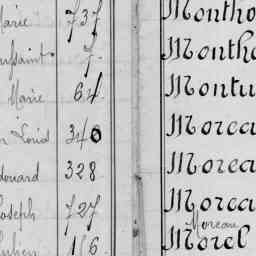 Marie 737 Montho
oussaint 7. Montho
Marie 64 Montu
n Louis 340 Morea
douard 328 Morea
Joseph 727 Morea
Moreau
Julien 116 Morel